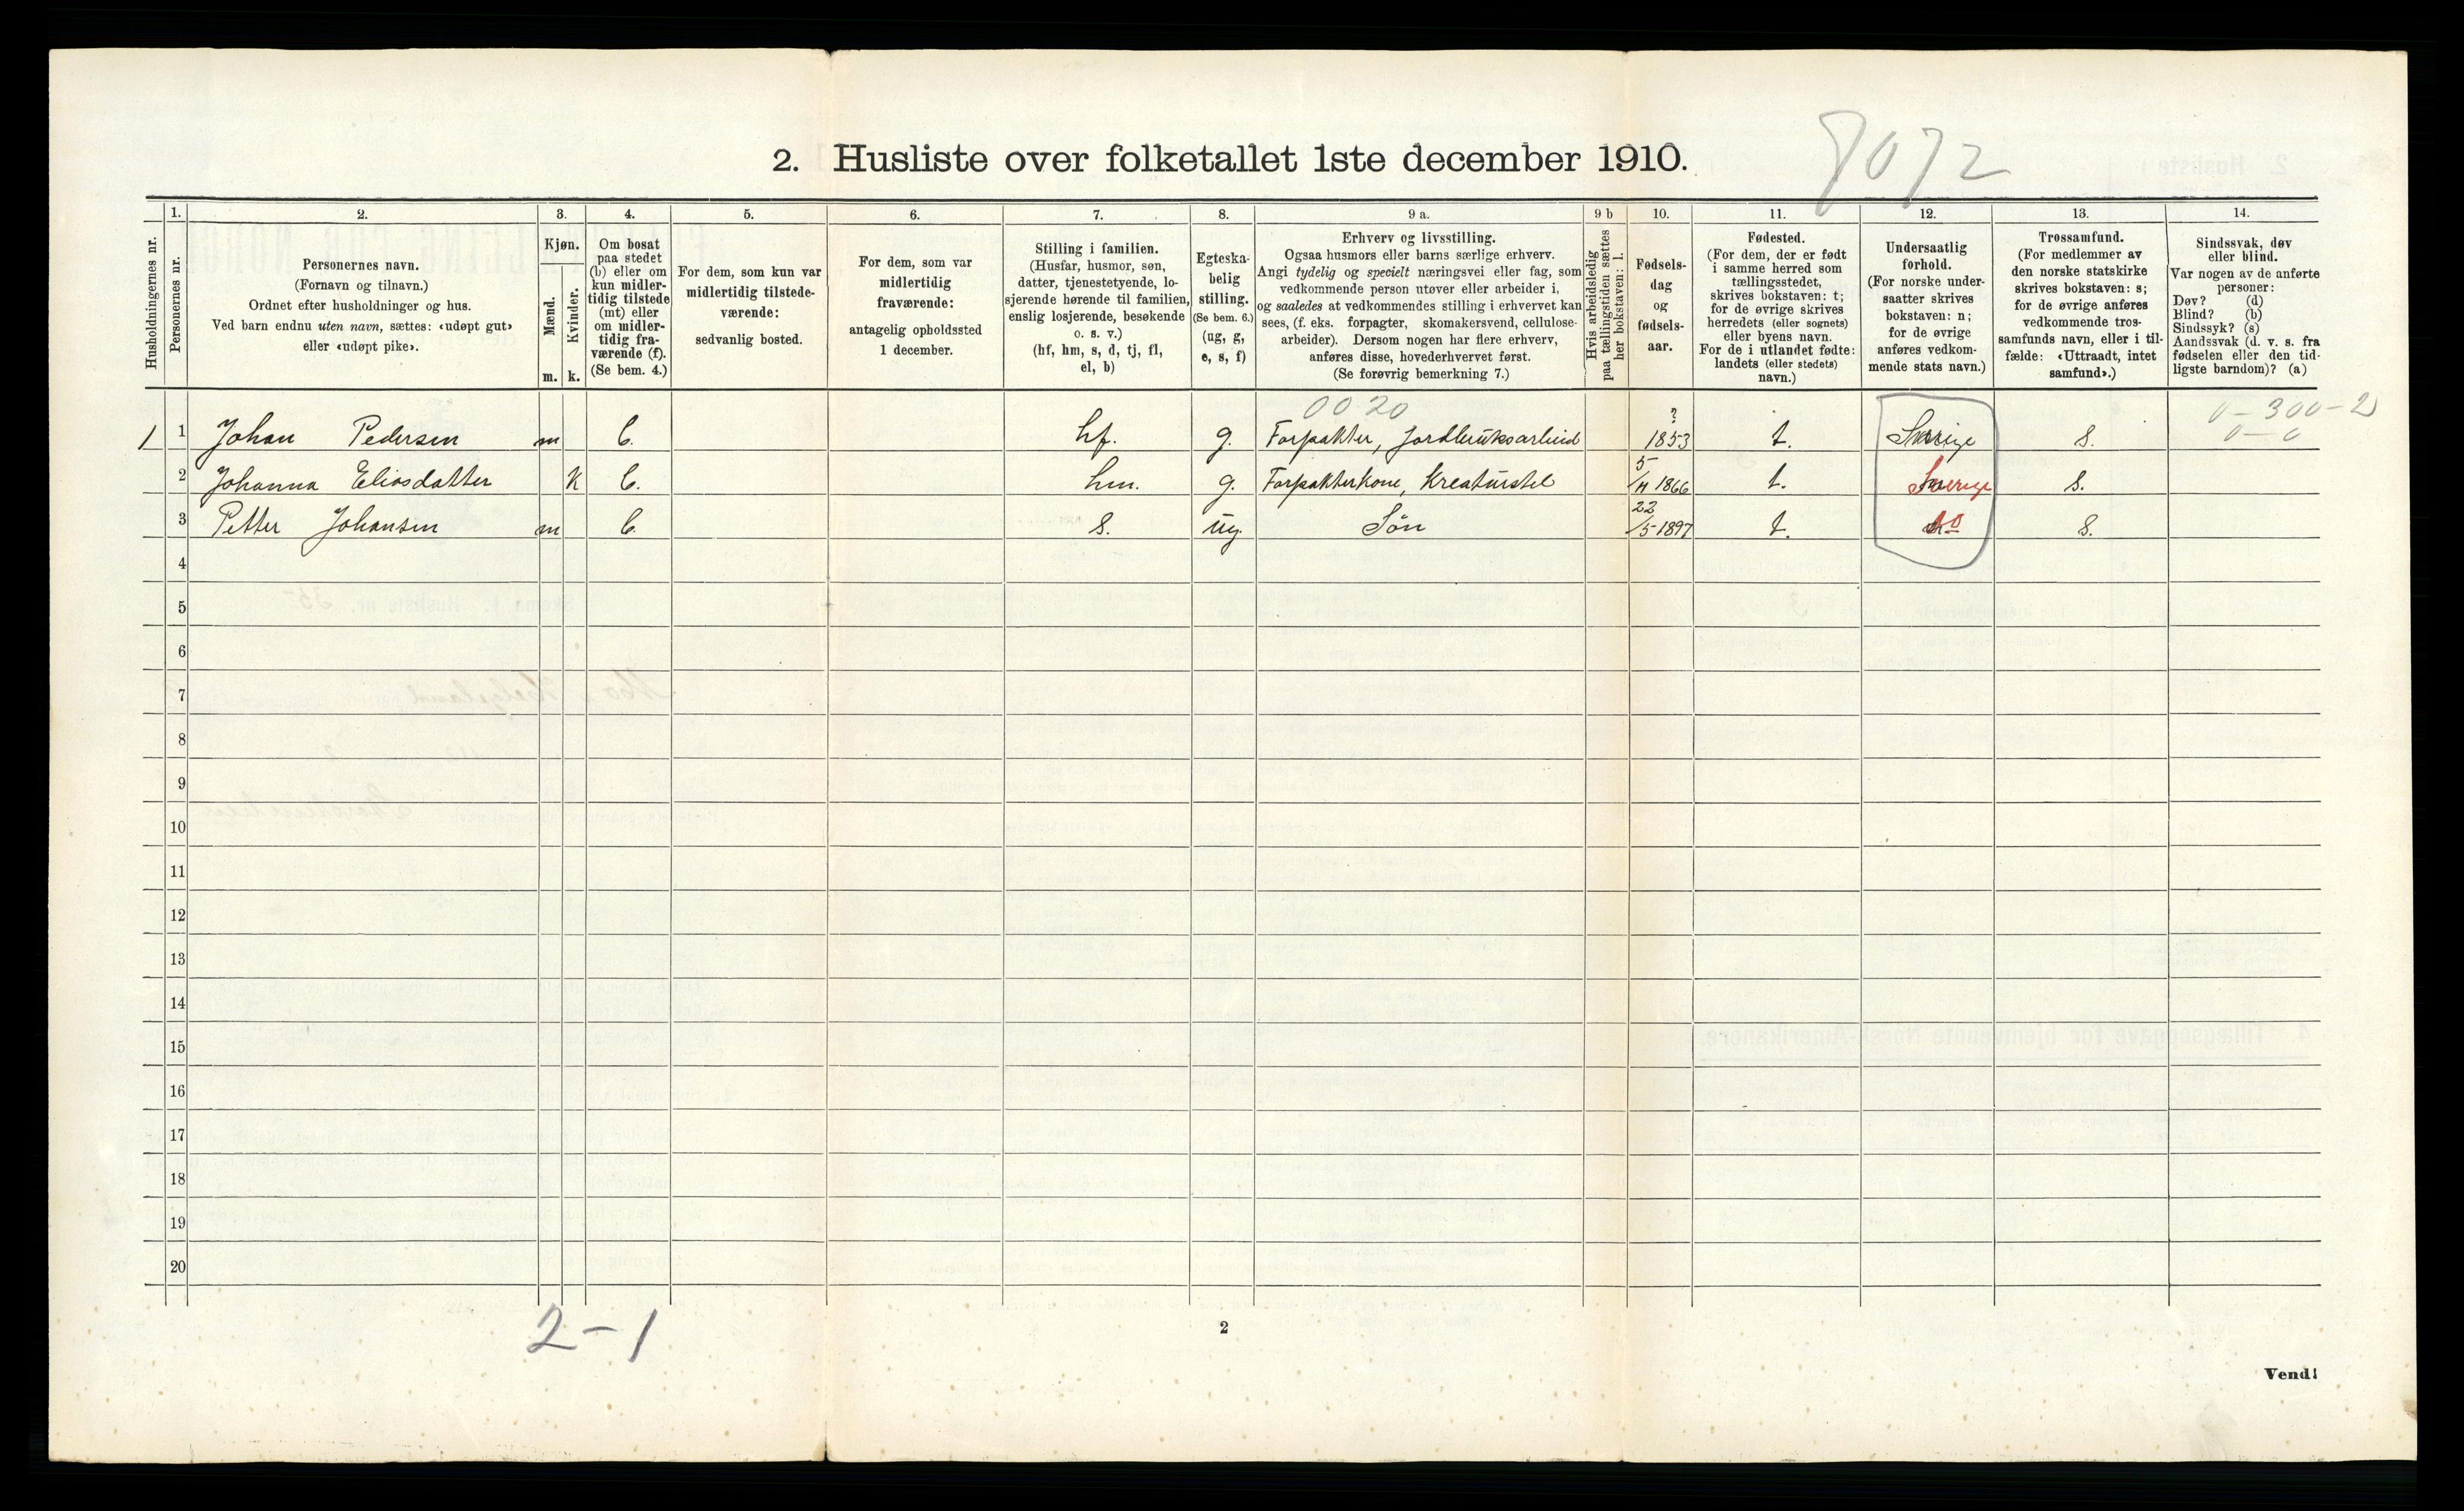 8072
2. Husliste over folketallet 1ste december 1910.
Husholdningernes nr.
1.
Personernes nr.
2.
Personernes navn.
(Fornavn og tilnavn.)
Ordnet efter husholdninger og hus.
Ved barn endnu uten navn, sættes: «udøpt gut»
eller «udøpt pike».
3.
Kjøn.
Mænd.
m.
Kvinder.
k.
4.
Om bosat
paa stedet
(b) eller om
kun midler-
tidig tilstede
(mt) eller
om midler-
tidig fra-
værende (f).
(Se bem. 4.)
5.
For dem, som kun var
midlertidig tilstede-
værende:
sedvanlig bosted.
6.
For dem, som var
midlertidig
fraværende:
antagelig opholdssted
1 december.
7.
Stilling i familien.
(Husfar, husmor, søn,
datter, tjenestetyende, lo-
sjerende hørende til familien,
enslig losjerende, besøkende
o. s. v.)
(hf, hm, s, d, tj, fl,
el, b)
8.
Egteska-
belig
stilling.
(Se bem. 6.)
(ug, g,
e, s, f)
9 a.
Erhverv og livsstilling.
Ogsaa husmors eller barns særlige erhverv.
Angi tydelig og specielt næringsvei eller fag, som
vedkommende person utøver eller arbeider i,
og saaledes at vedkommendes stilling i erhvervet kan
sees, (f. eks. forpagter, skomakersvend, cellulose-
arbeider). Dersom nogen har flere erhverv,
anføres disse, hovederhvervet først.
(Se forøvrig bemerkning 7.)
9 b
Hvis arbeidsledig
paa tællingstiden sættes
her bokstaven: l.
10.
Fødsels-
dag
og
fødsels-
aar.
11.
Fødested.
(For dem, der er født
i samme herred som
tællingsstedet,
skrives bokstaven: t;
for de øvrige skrives
herredets (eller sognets)
eller byens navn.
For de i utlandet fødte:
landets (eller stedets)
navn.)
12.
Undersaatlig
forhold.
(For norske under-
saatter skrives
bokstaven: n;
for de øvrige
anføres vedkom-
mende stats navn.)
13.
Trossamfund.
(For medlemmer av
den norske statskirke
skrives bokstaven: s;
for de øvrige anføres
vedkommende tros-
samfunds navn, eller i til-
fælde: «Uttraadt, intet
samfund».)
14.
Sindssvak, døv
eller blind.
Var nogen av de anførte
personer:
Døv? (d)
Blind? (b)
Sindssyk? (s)
Aandssvak (d. v. s. fra
fødselen eller den tid-
ligste barndom)? (a)
0020 ? 0-300-2
1 1 Johan Pedersen m b. hf. g. Forpakter, jordbruksarbeid 1853 t. Sverige S. 0-0
2 Johanna Eliasdatter K b. hm. g. Forpakterkone, Kreaturstel 5/11 1866 t. Sverige S.
3 Petter Johansen m b. S. ug. Søn 22/5 1897 t. do S.
4
5
6
7
8
9
10
11
12
13
14
15
16
17
18
19
20
2-1
2
Vend!